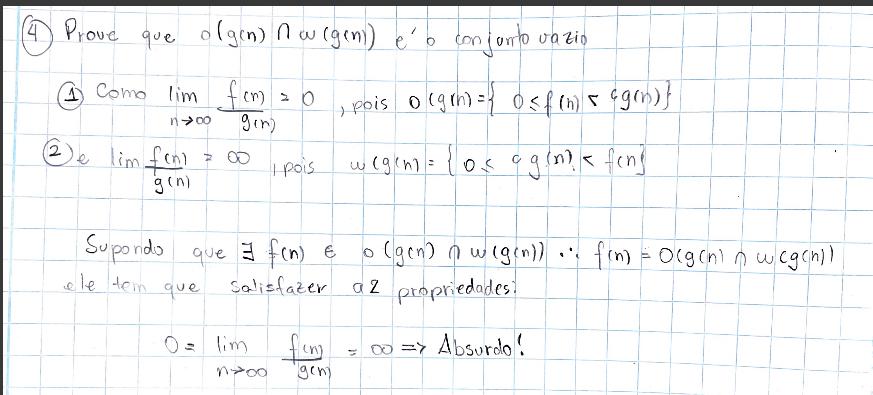 ④ Prove que o(g(n) ∩ w(g(n)) e' o conjunto vazio
① Como lim n→∞ f(n)/g(n) = 0 , pois o(g(n) = { 0 ≤ f(n) < cg(n)}
② e lim f(n)/g(n) = ∞ , pois w(g(n) = { 0 ≤ c g(n) < f(n)}
Supondo que ∃ f(n) ∈ o(g(n) ∩ w(g(n)) ∴ f(n) = o(g(n) ∩ w(g(n))
ele tem que satisfazer a 2 propriedades:
0 = lim n→∞ f(n)/g(n) = ∞ => Absurdo!